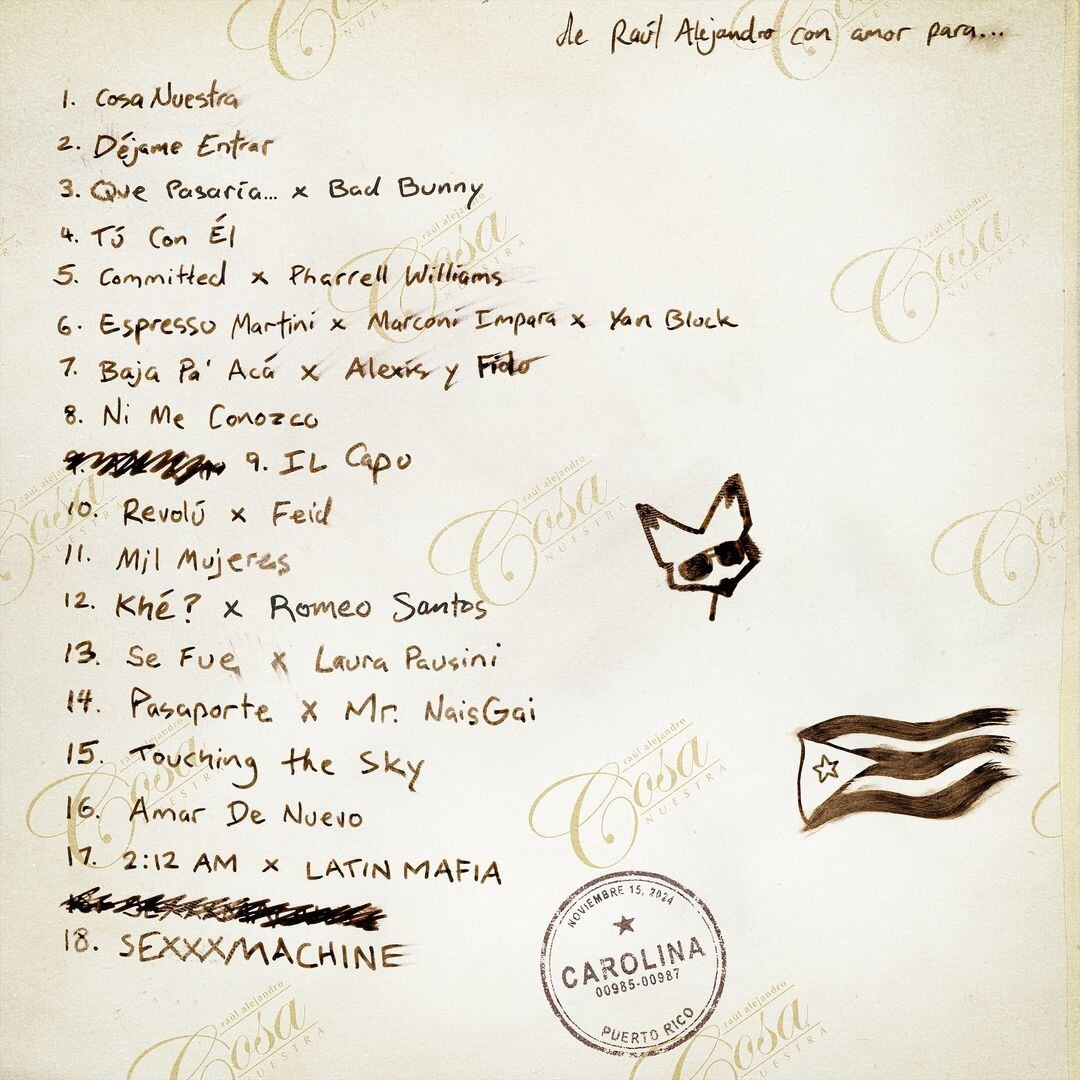 de Raúl Alejandro con amor para...
1. Cosa Nuestra
2. Déjame Entrar
3. Que Pasaría... x Bad Bunny
4. Tú Con Él
5. Committed x Pharrell Williams
6. Espresso Martini x Marconi Impara x Yan Block
7. Baja Pa' Acá x Alexis y Fido
8. Ni Me Conozco
9. IL Capo
10. Revolú x Feid
11. Mil Mujeres
12. Khé? x Romeo Santos
13. Se Fue x Laura Pausini
14. Pasaporte x Mr. NaisGai
15. Touching the Sky
16. Amar De Nuevo
17. 2:12 AM x LATIN MAFIA
18. SEXXXMACHINE
NOVIEMBRE 15, 2024
CAROLINA
00985-00987
PUERTO RICO
raúl alejandro
Cosa
NUESTRA